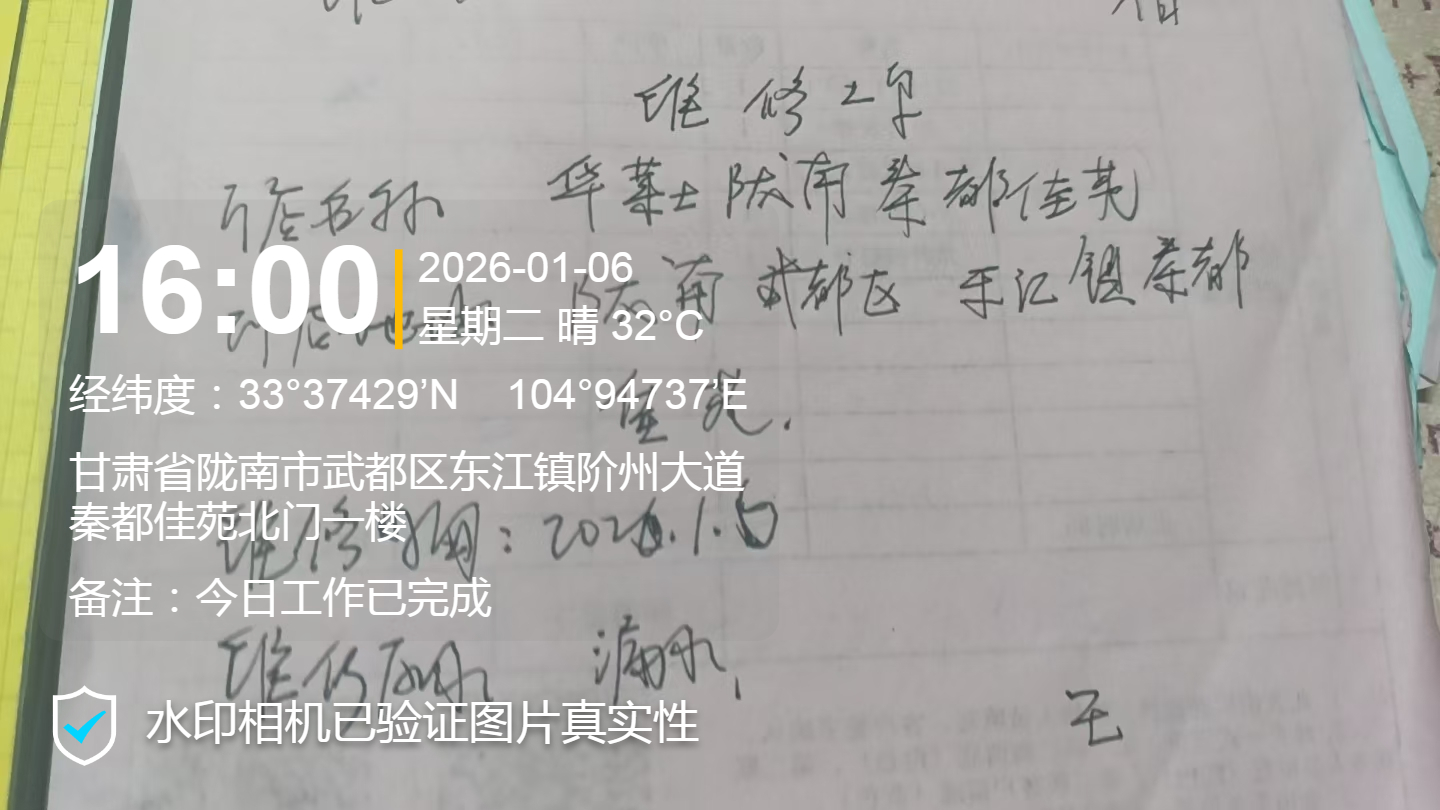 维修工单
门店名称 华莱士陇南秦都佳苑
16:00
2026-01-06
星期二 晴 32°C
门店地址 陇南武都区东江镇秦都
佳苑.
经纬度：33°37429’N 104°94737’E
甘肃省陇南市武都区东江镇阶州大道
秦都佳苑北门一楼
维修时间：2026.1.
备注：今日工作已完成
维修 漏水,
水印相机已验证图片真实性